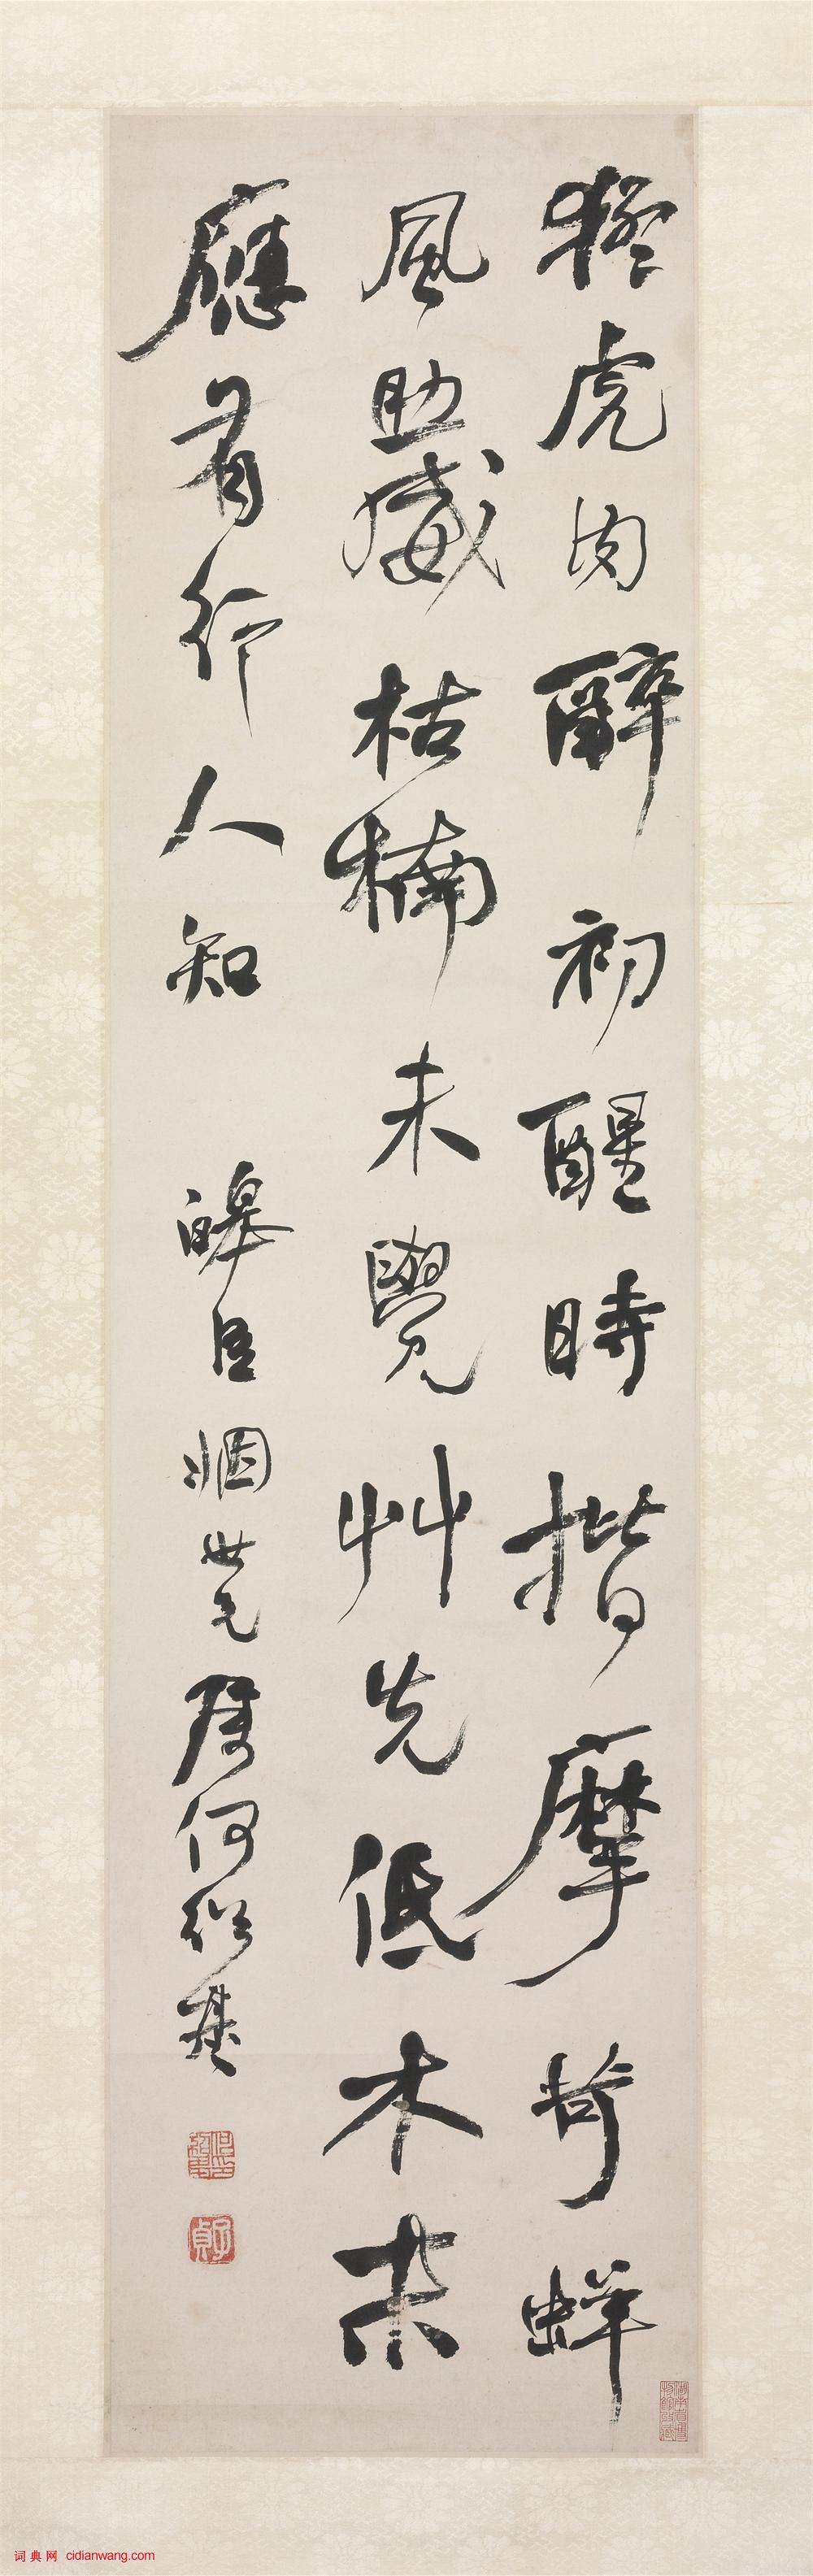 猛虎肉醉初醒時揩摩苛蛘
風助威枯楠未覺艸先低木末
應有行人知 皞臣姻世兄屬何紹基
子貞
词典网 cidianwang.com